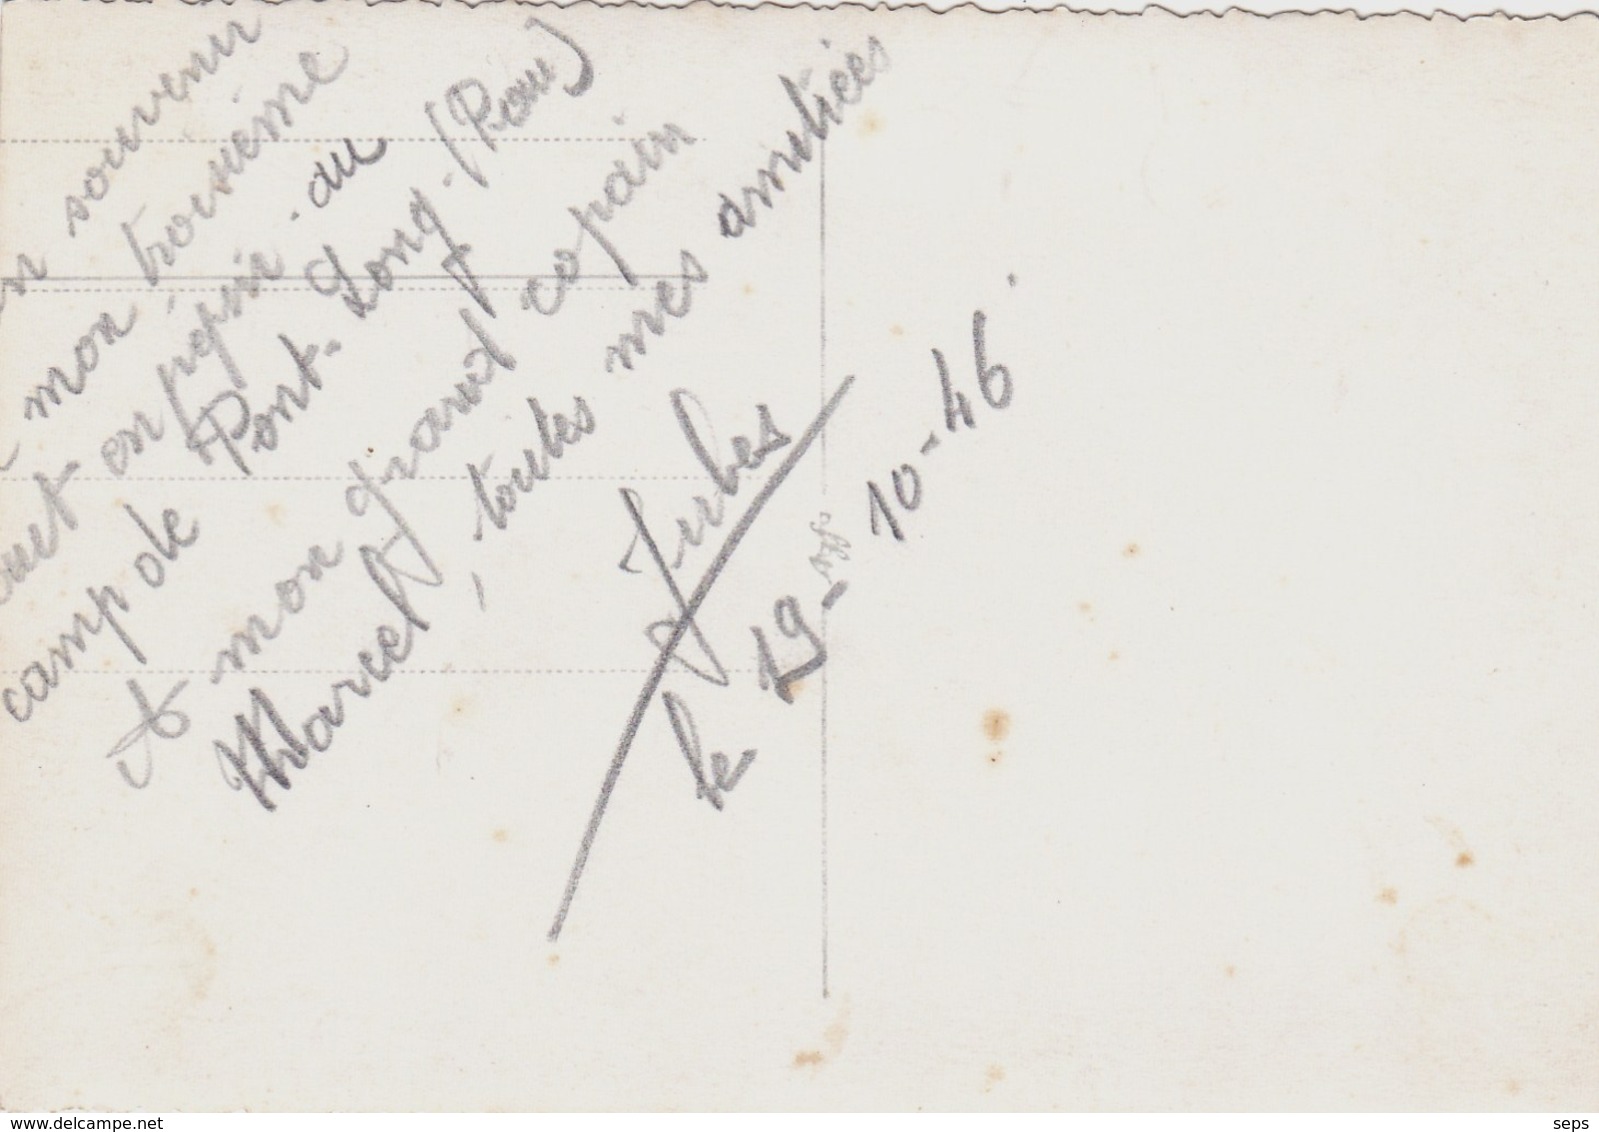 souvenir
mon troisième
en pépin. au
camp de Pont-Long. (Pau)
A mon grand copain
Marcel, toutes mes amitiées
Jubes
le 19-10-46
www.delcampe.net
seps